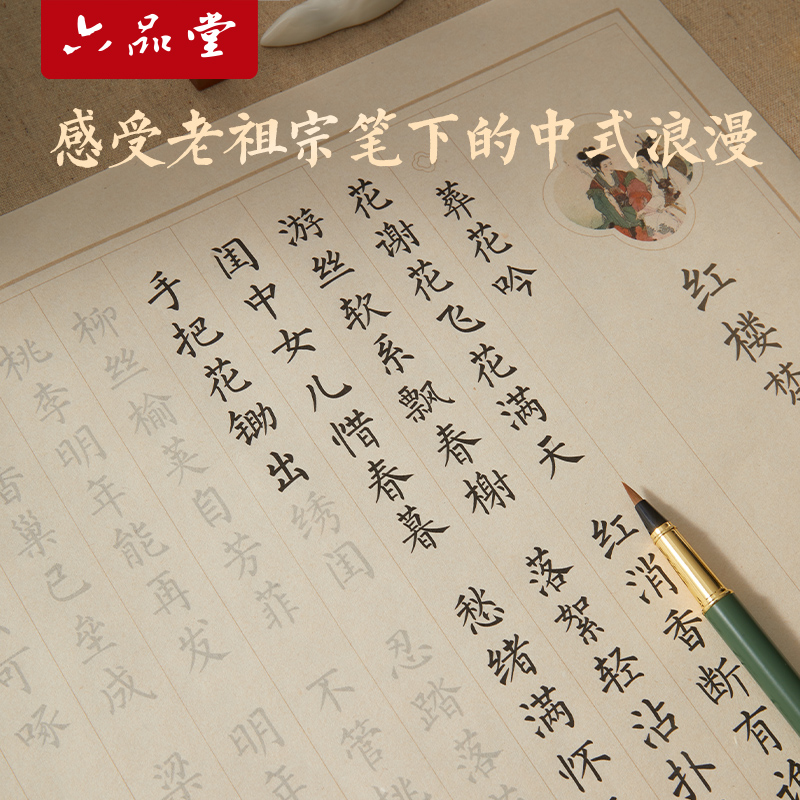 六品堂
感受老祖宗笔下的中式浪漫
红楼梦
葬花吟
花谢花飞花满天 红消香断有
游丝软系飘春榭 落絮轻沾扑
闺中女儿惜春暮 愁绪满怀
手把花锄出绣闺 忍踏落
柳丝榆英自芳菲 不管桃
桃李明年能再发 明年
香巢已垒成 梁
可啄